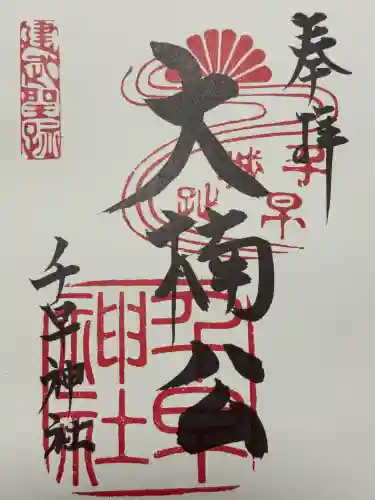 奉拝
大楠公
千早城址
建武聖跡
千早神社
千早神社